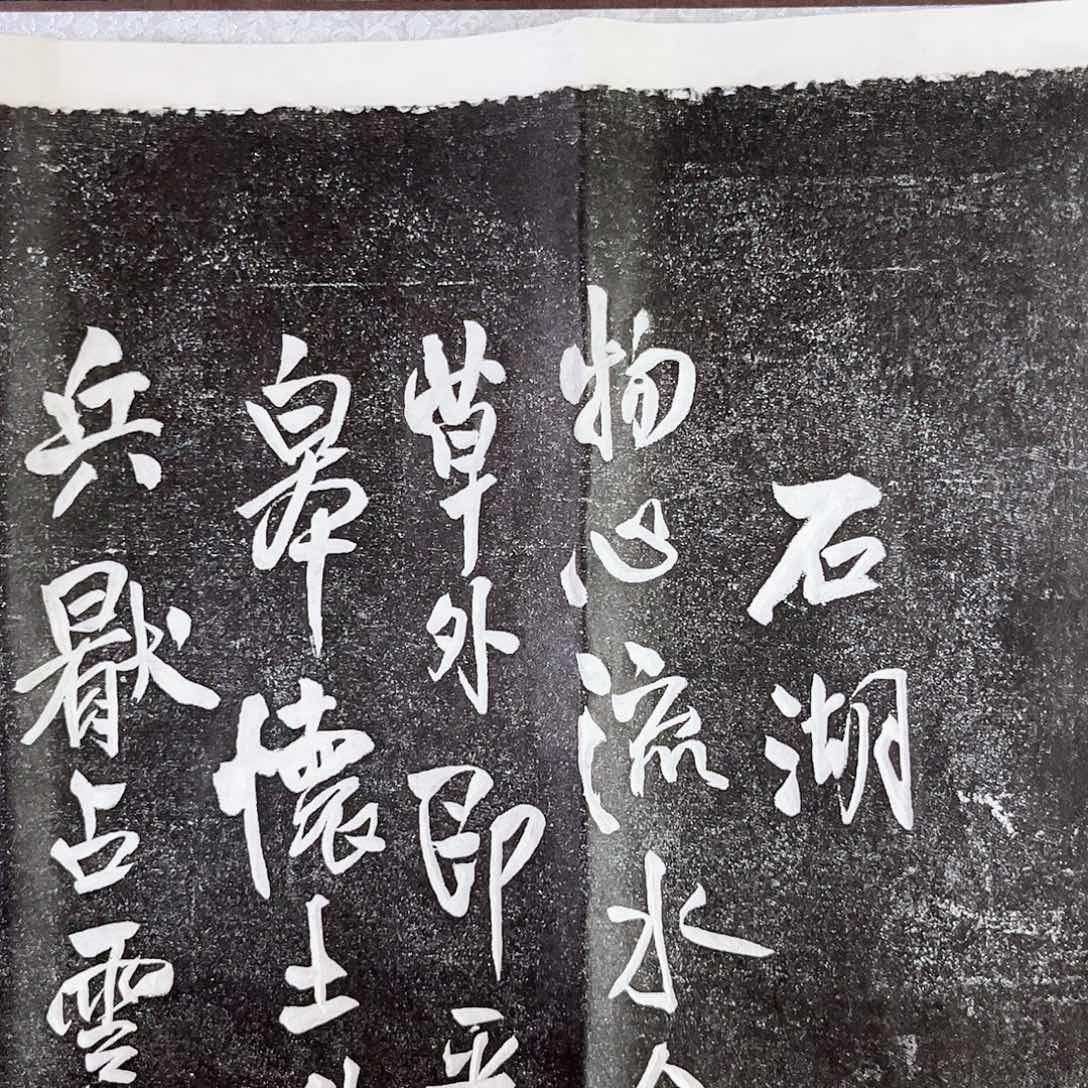 石湖
物心流水
草外即
皋懷土
兵猒占雲